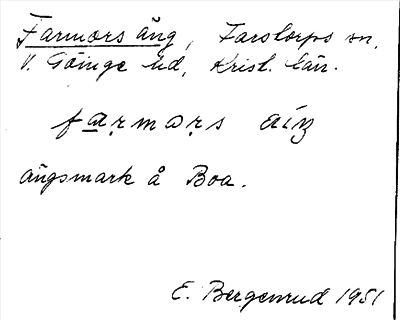 Farmors äng, Farstorps sn,
V. Göinge hd, Krist. län.
fạrmạrs äiŋ
ängsmark å Boa.
E. Bergenrud 1951